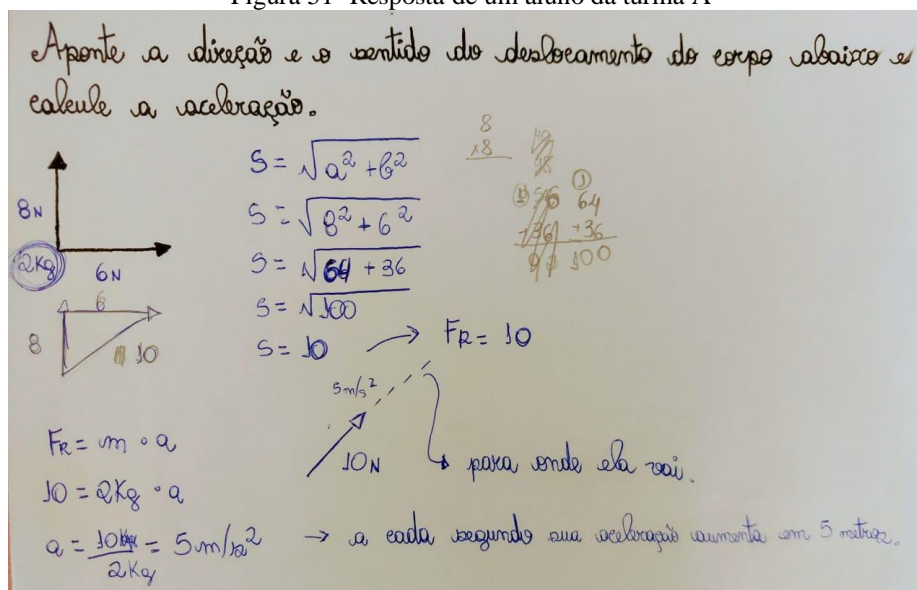 Figura 31- Resposta de um aluno da turma A
Aponte a direção e o sentido do deslocamento do corpo abaixo e
calcule a aceleração.
8N
2Kg
6N
6
8
10
S = √a² + b²
S = √8² + 6²
S = √64 + 36
S = √100
S = 10
FR = 10
8
x8
56 64
+36 +36
100
5m/s²
10N
para onde ela vai.
FR = m · a
10 = 2Kg · a
a = 10 = 5 m/s²
2Kg
→ a cada segundo sua aceleração aumenta em 5 metros.